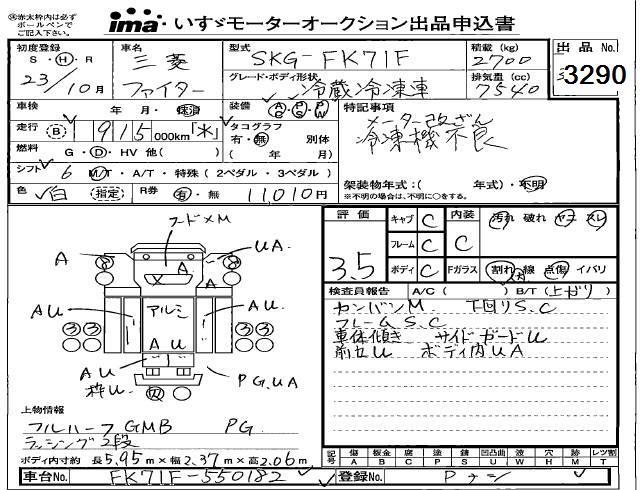 ※赤太枠内は必ずボールペンでご記入下さい
ima・いすゞモーターオークション出品申込書
初度登録
S・H・R
23/10月
車名
三菱
ファイター
型式
SKG-FK71F
グレード・ボディ形状
冷蔵冷凍車
積載(kg)
2700
排気量(cc)
7540
出品No.
3290
車検
年・月・検済
装備
A/C P/S P/W
特記事項
メーター改ざん
冷凍機不良
走行
B
915000km「*」
タコグラフ
有・無 別体
( 年 月)
燃料
G・D・HV 他( )
シフト
6 M/T・A/T・特殊(2ペダル・3ペダル)
架装物年式:( 年式)・不明
※不明の場合は、不明に○をする。
色
白 (指定)
R券
有・無 11,010円
評価
3.5
キャブ C
フレーム C
ボディ C
内装 C
汚れ 破れ ヤコ スレ
Fガラス
割れ 線 点傷 イバリ
フードメM
A
UA
X
A
A
AU
アルミ
AU
AU
3 3
3 3
AU
枠U
PG.UA
検査員報告
A/C( ) B/T(上がり)
カンバンM 下回りS.C
フレームS.C
車体傾き サイドガードU
前セU ボディ内UA
上物情報
フルハーフGMB PG
ラッシング2段
ボディ内寸約 長5.95m×幅2.37m×高2.06m
車台No. FK71F-550182
記号
傷 A
鈑金 B
腐 C
塗 P
錆 S
凹凸曲 U
波 W
穴 H
跡 M
レツ割 T
登録No. Pナシ